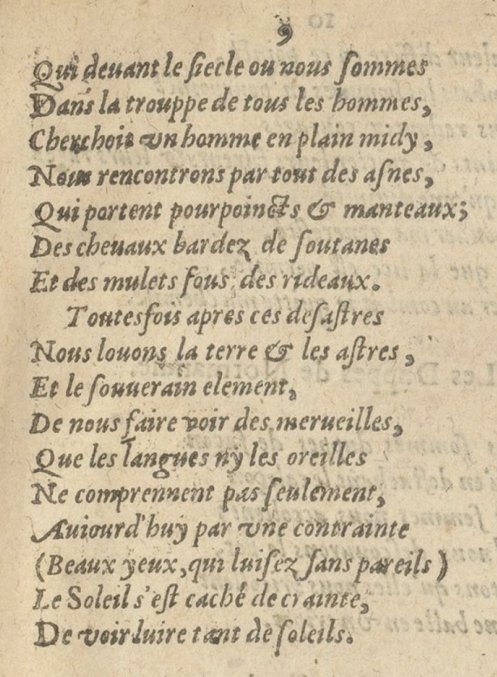 9
Qui deuant le siecle ou nous sommes
Dans la trouppe de tous les hommes,
Cherchois vn homme en plain midy,
Nous rencontrons par tout des asnes,
Qui portent pourpoincts & manteaux;
Des cheuaux bardez de soutanes
Et des mulets sous des rideaux.
Toutesfois apres ces desastres
Nous louons la terre & les astres,
Et le souuerain element,
De nous faire voir des merueilles,
Que les langues ny les oreilles
Ne comprennent pas seulement,
Auiourd'huy par vne contrainte
(Beaux yeux, qui luisez sans pareils)
Le Soleil s'est caché de crainte,
De voir luire tant de soleils.